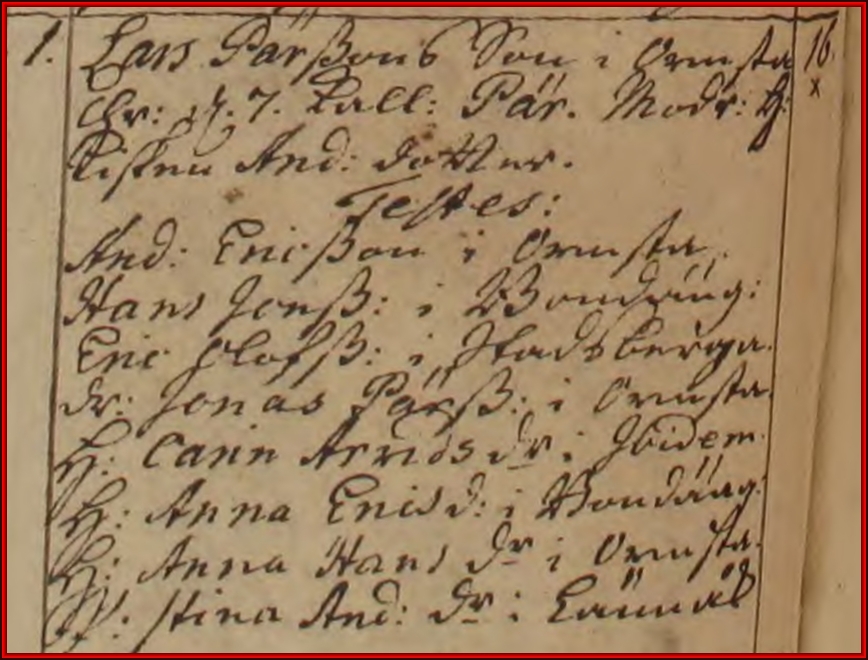 1. Lars Pärßons Son i Ormsta 16.
Chr: d. 7. kall: Pär. Modr: H: x
Kisten And: dotter.
Testes:
And: Ericßon i Ormsta.
Hans Jonß: i Bondäng:
Eric Olofß: i Stadsberga.
dr: Jonas Pärß: i Ormsta.
H: Carin Arvids dr i Ibidem.
H: Anna Erics d: i Bondäng:
H: Anna Hans dr i Ormsta.
P: Stina And: dr i